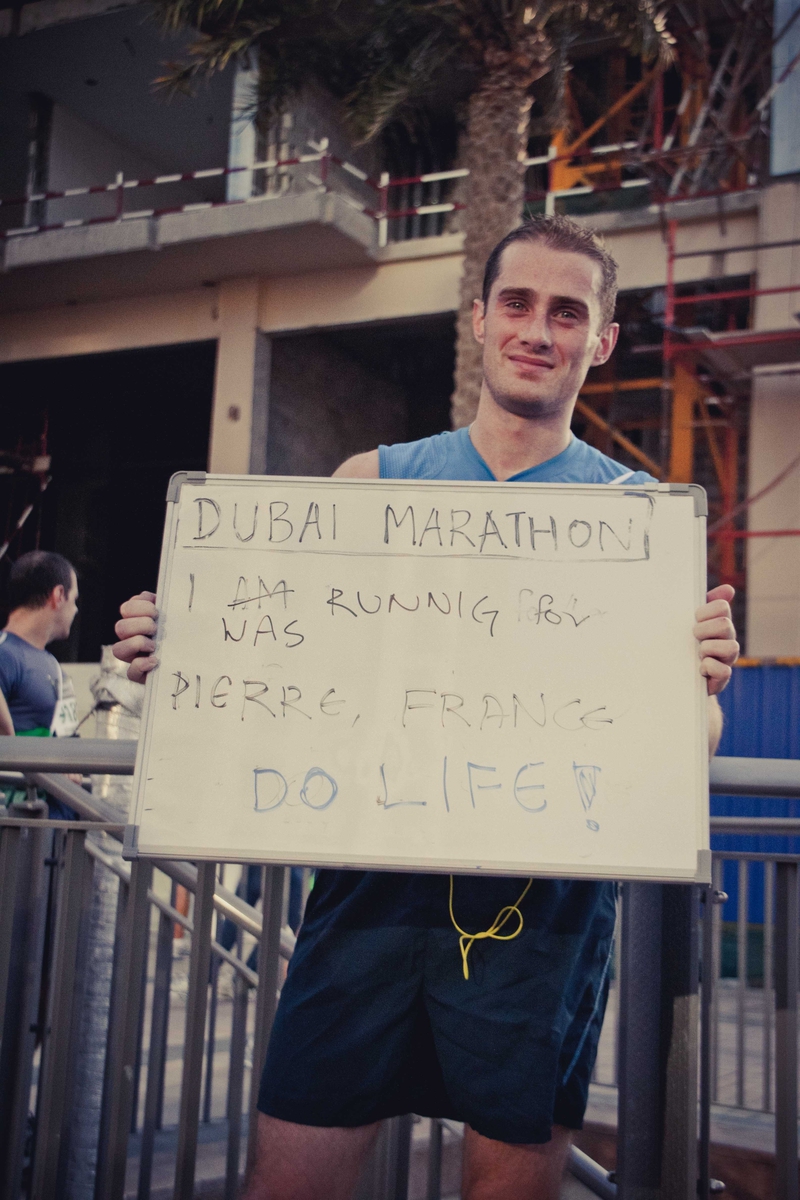 DUBAI MARATHON
I AM RUNNIG for
WAS
PIERRE, FRANCE
DO LIFE!